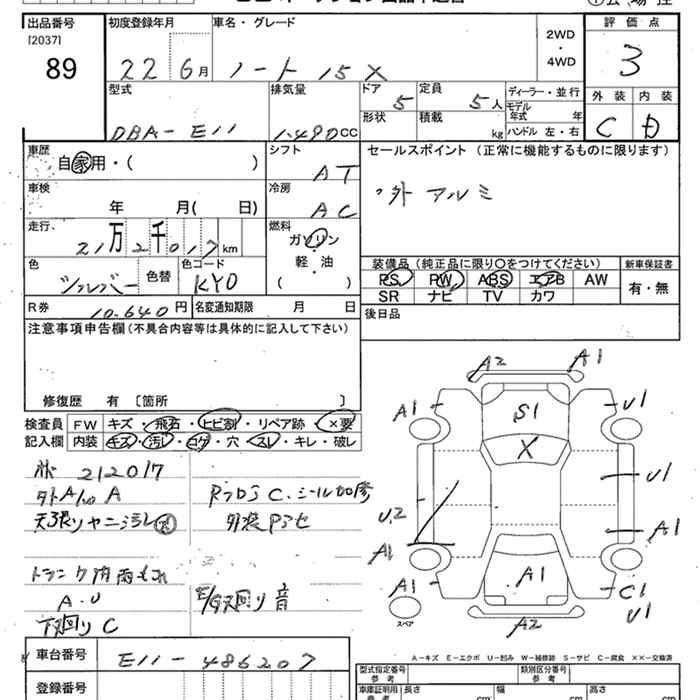 出品番号 初度登録年月 車名・グレード 2WD 評価点
[2037] ・
89 22 6月 ノート 15X 4WD 3
型式 排気量 ドア 定員 ディーラー・並行 外装 内装
5 5人 モデル年式 年 C D
DBA-E11 1.490cc 形状 積載 kg ハンドル 左・右
車歴 シフト セールスポイント(正常に機能するものに限ります)
自家用・( ) AT
車検 冷房 ・外 アルミ
年 月( 日) AC
走行、 燃料
21万2千017km ガソリン
色 色替 色コード 軽・油 装備品(純正品に限り〇をつけてください) 新車保証書
シルバー KY0 ( ) PS PW ABS エアB AW 有・無
SR ナビ TV カワ
R券 10.640円 名変通知期限 月 日 後日品
注意事項申告欄(不具合内容等は具体的に記入して下さい)
修復歴 有 〔箇所 〕
検査員 FW キズ・飛石・ヒビ割・リペア跡・×要
記入欄 内装 キズ・汚レ・コゲ・穴・スレ・キレ・破レ
212017
天張りヤニ汚レ 外装
トランク内雨もれ
A・U 下廻り音
下廻りC
A2 A1
A1 S1 U1
X
U1
U2 A1
A1
A1 A1 C1
U1
スペア A2
A-キズ E-エクボ U-凹み W-補修跡 S-サビ C-腐食 ××-交換済
車台番号 E11-486207 型式指定番号 類別区分番号
参考 参考
登録番号 車庫証明用 長さ 幅 高さ
参考 cm cm cm